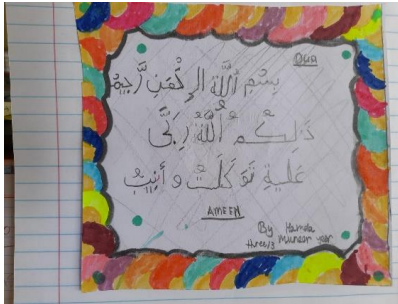 DUA
بِسْمِ اللّٰهِ الرَّحْمٰنِ الرَّحِيمِ
ذَلِكُمُ اللَّهُ رَبِّي
عَلَيْهِ تَوَكَّلْتُ وَ أُنِيبُ
AMEEN
By Hamda
Muneer
three/3